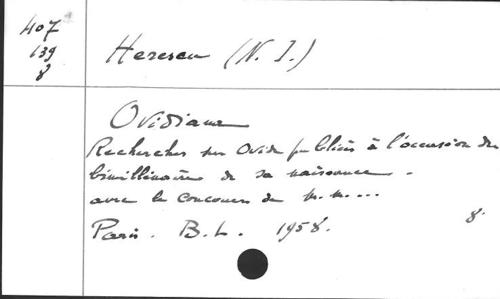 407
139
8
Herescu (N. I.)
Ovidiana
Recherches sur Ovide publiées à l'occasion du
bimillénaire de sa naissance.
avec le concours de M.M....
Paris. B.L. 1958. 8.